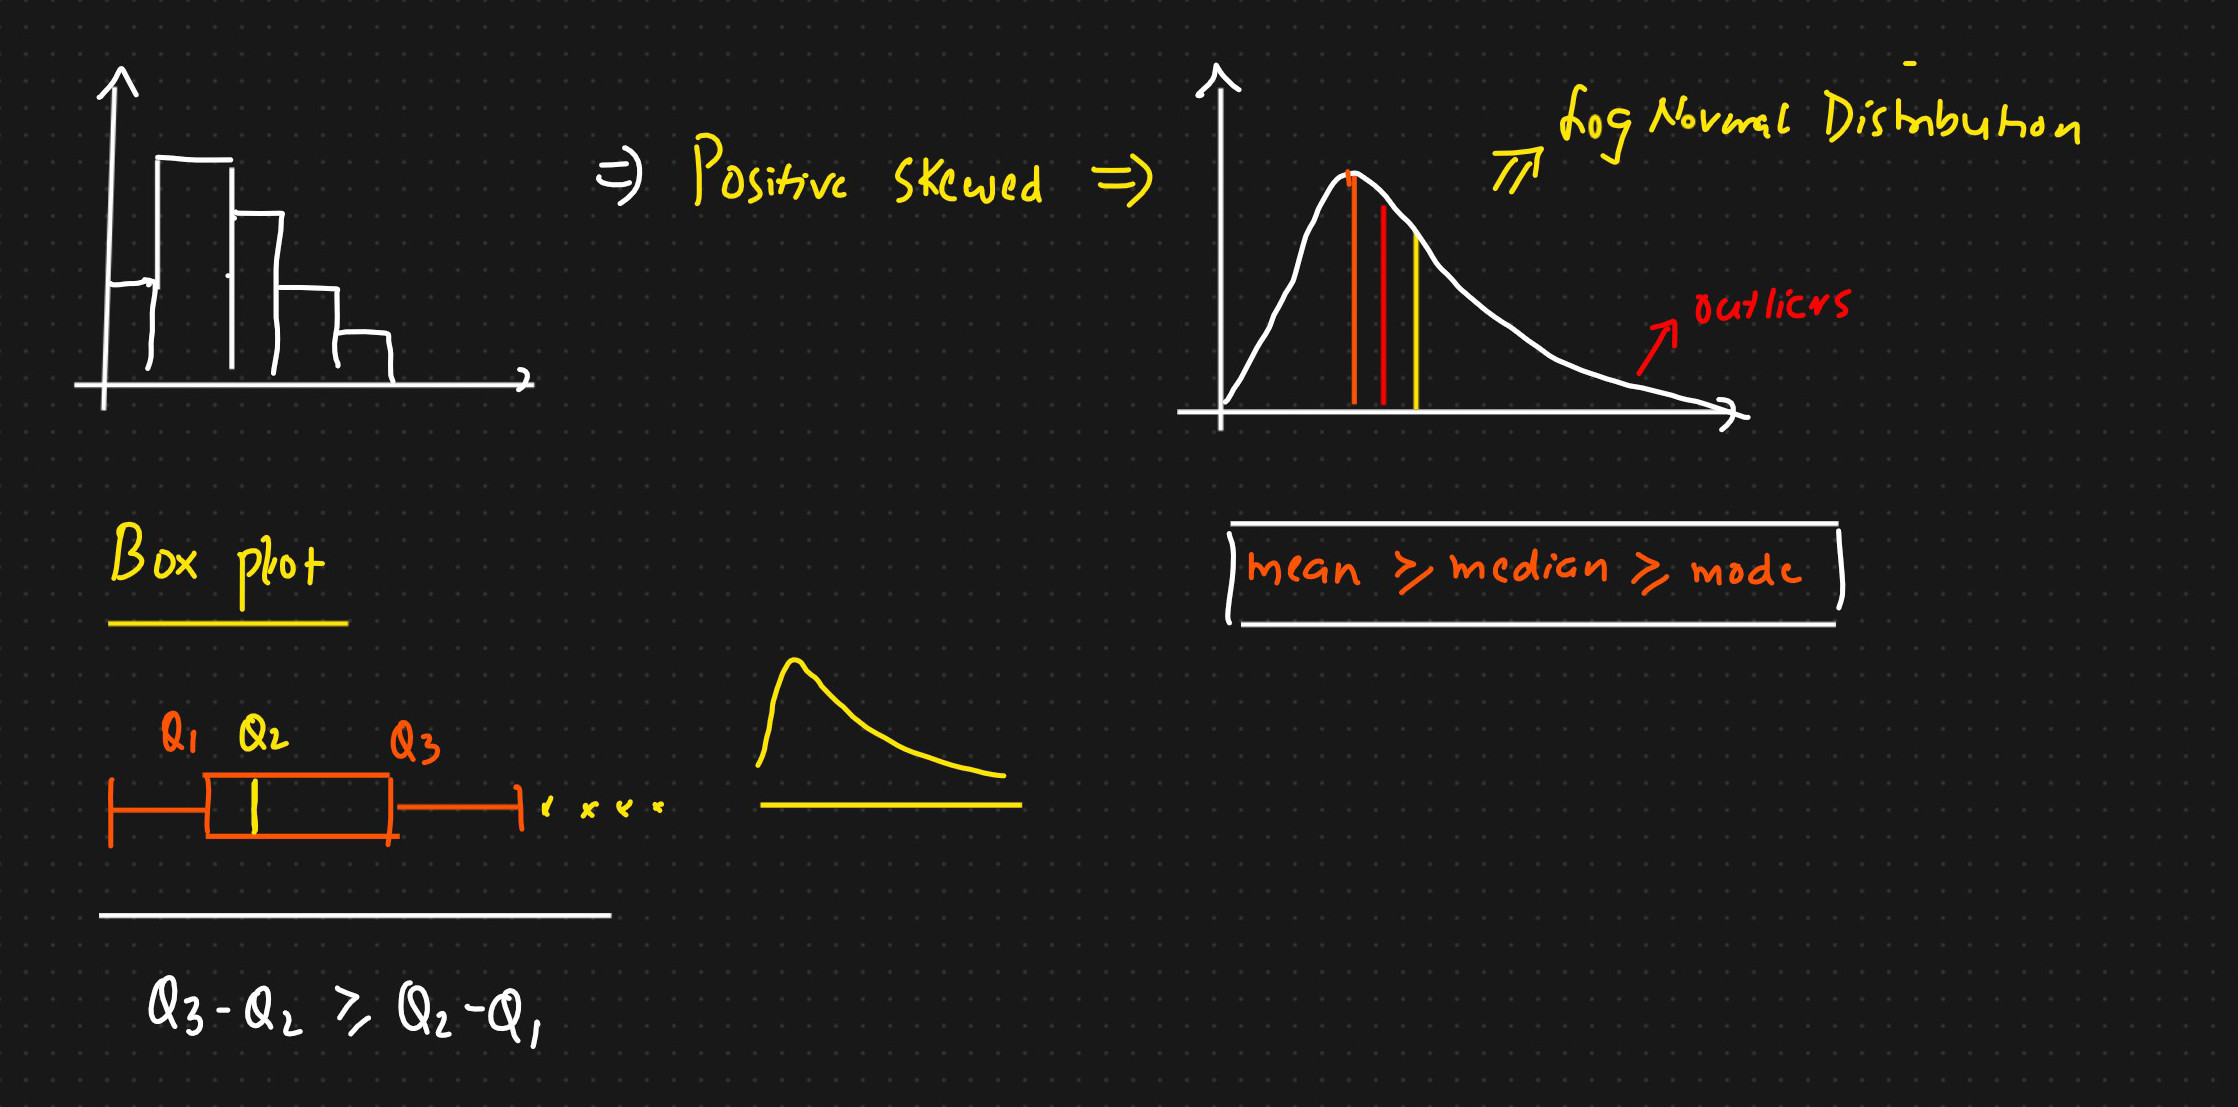 ⇒ Positive skewed ⇒
Log Normal Distribution
outliers
mean ≥ median ≥ mode
Box plot
Q1 Q2 Q3
Q3-Q2 ≥ Q2-Q1